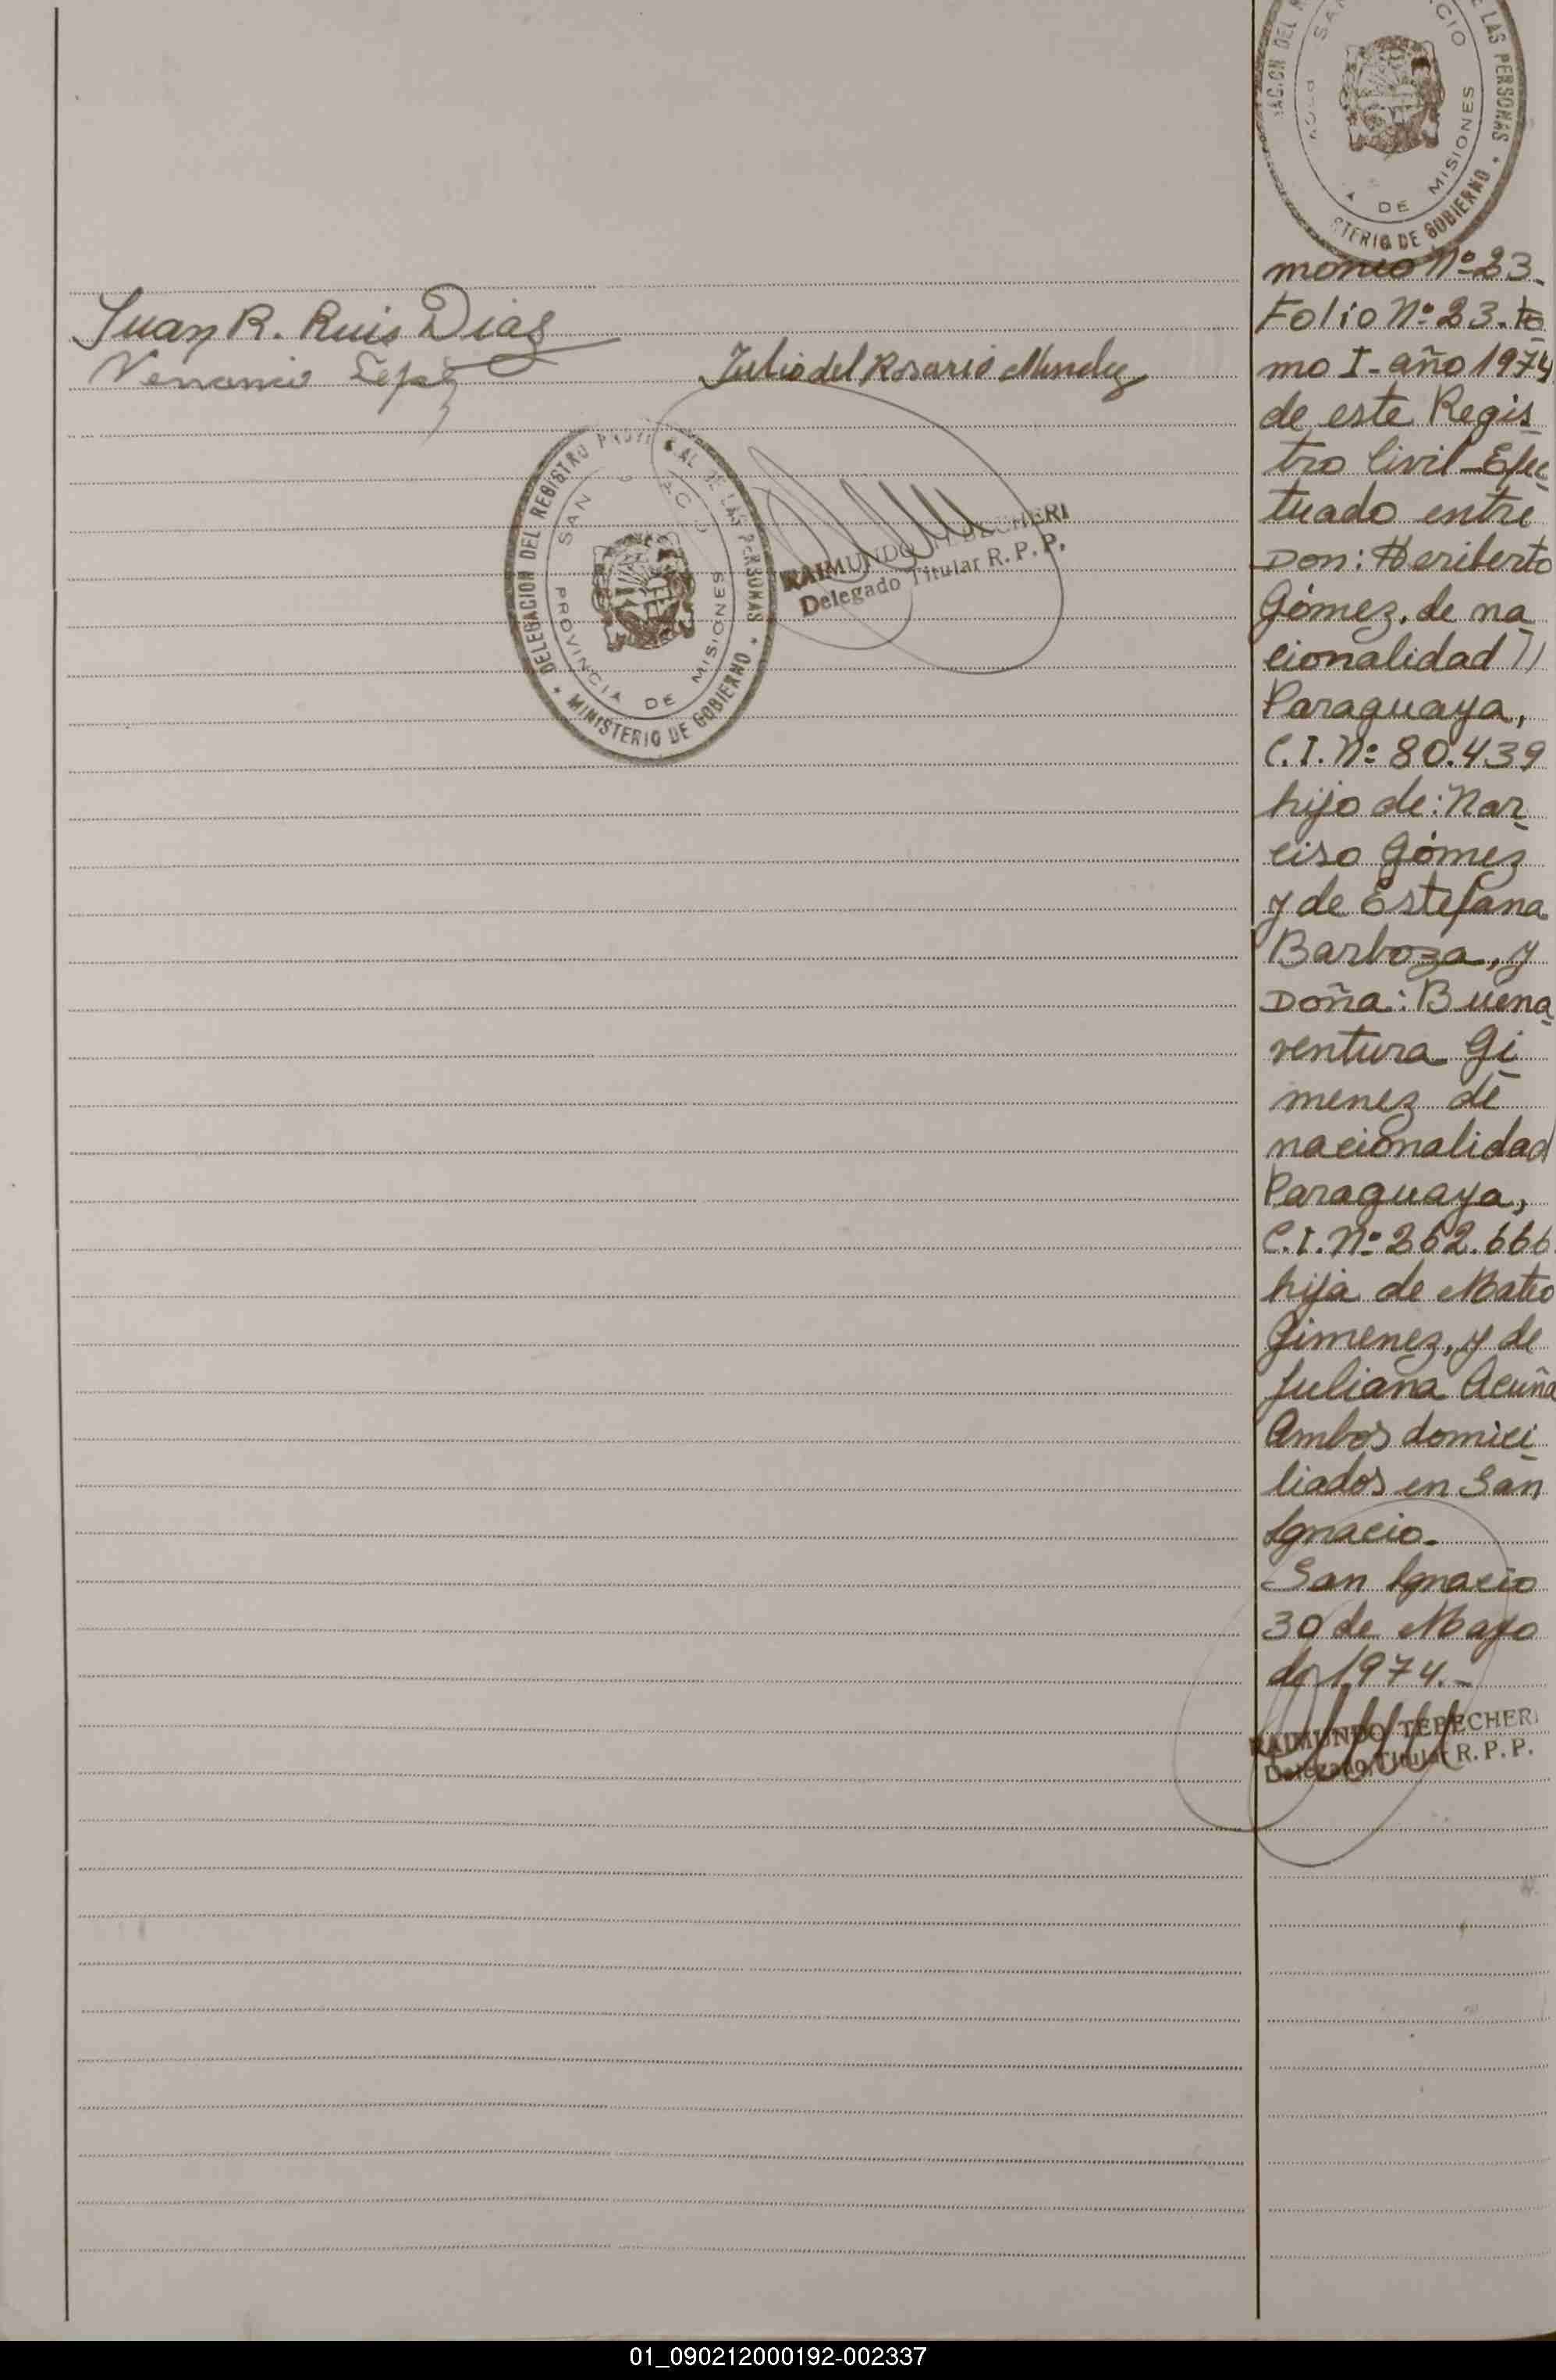 Juan R. Ruis Dias
Venancio
Julio del Rosario Mendez
DELEGACION DEL REGISTRO PROVINCIAL DE LAS PERSONAS
SAN IGNACIO
PROVINCIA DE MISIONES
• MINISTERIO DE GOBIERNO •
RAIMUNDO TEBECHERI
Delegado Titular R. P. P.
LAS PERSONAS •
DE MISIONES
DE GOBIERNO
monio Nº 23
Folio Nº 23. to
mo I - año 1974
de este Regis
tro Civil - Efec
tuado entre
Don: Heriberto
Gómez, de na
cionalidad //
Paraguaya,
C.I. Nº 80.439
hijo de: Nar
ciso Gómez
y de Estefana
Barboza, y
Doña: Buena
ventura Gi
menez de
nacionalidad
Paraguaya,
C.I. Nº 262.666
hija de Mateo
Gimenez, y de
Juliana Acuña
Ambos domici
liados en San
Ignacio.
San Ignacio
30 de Mayo
de 1974.-
RAIMUNDO TEBECHERI
Delegado Titular R. P. P.
01_090212000192-002337